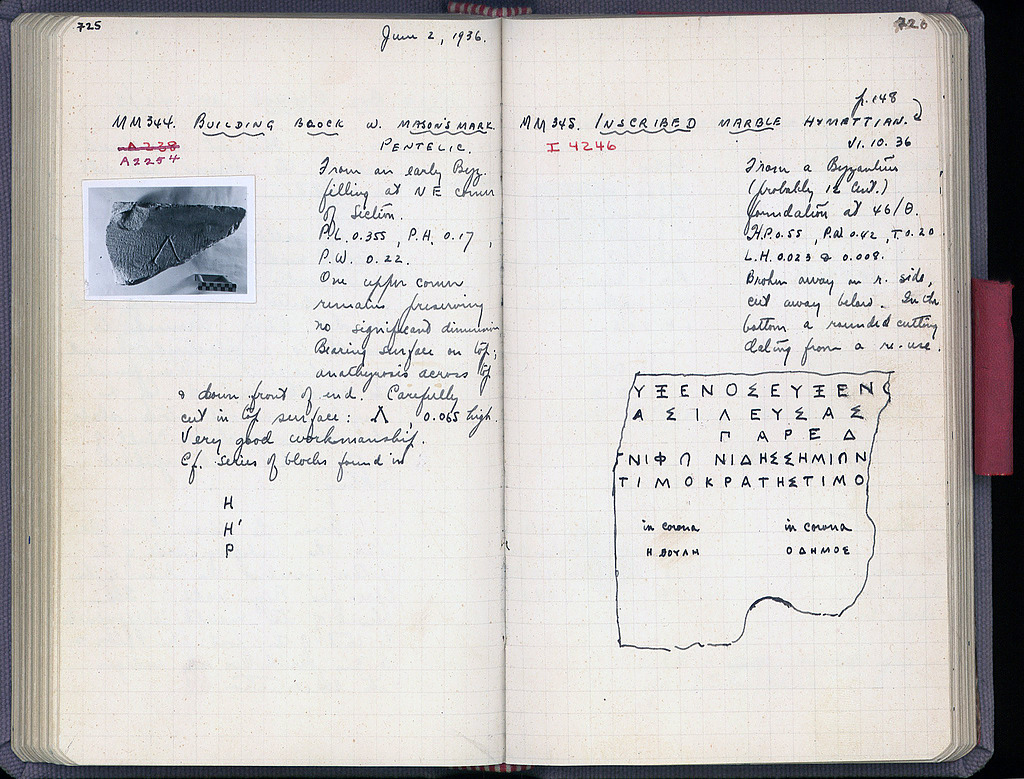 725
June 2, 1936.
MM344. BUILDING BLOCK W. MASON'S MARK.
PENTELIC.
A 238
A 2254
From an early Byz.
filling at NE corner
of Section.
P.L. 0.355, P.H. 0.17,
P.W. 0.22.
One upper corner
remains preserving
no significant dimension
Bearing surface on top;
anathyrosis across top
& down front of end. Carefully
cut in top surface: Λ, 0.065 high.
Very good workmanship.
Cf. series of blocks found in
H
H'
P
726
p.148
MM345. INSCRIBED MARBLE HYMETTIAN.
I 4246
VI.10.36
From a Byzantine
(probably 12 cent.)
foundation at 46/Θ.
H.P.0.55, P.W. 0.42, T.0.20
L.H. 0.023 & 0.008.
Broken away on r. side,
cut away below. In the
bottom a rounded cutting
dating from a re-use.
ΥΞΕΝΟΣΕΥΞΕΝΟ
ΑΣΙΛΕΥΣΑΣ
ΠΑΡΕΔ
ΝΙΦΩ ΝΙΔΗΣΣΗΜΙΩΝ
ΤΙΜΟΚΡΑΤΗΣΤΙΜΟ
in corona in corona
Η ΒΟΥΛΗ Ο ΔΗΜΟΣ